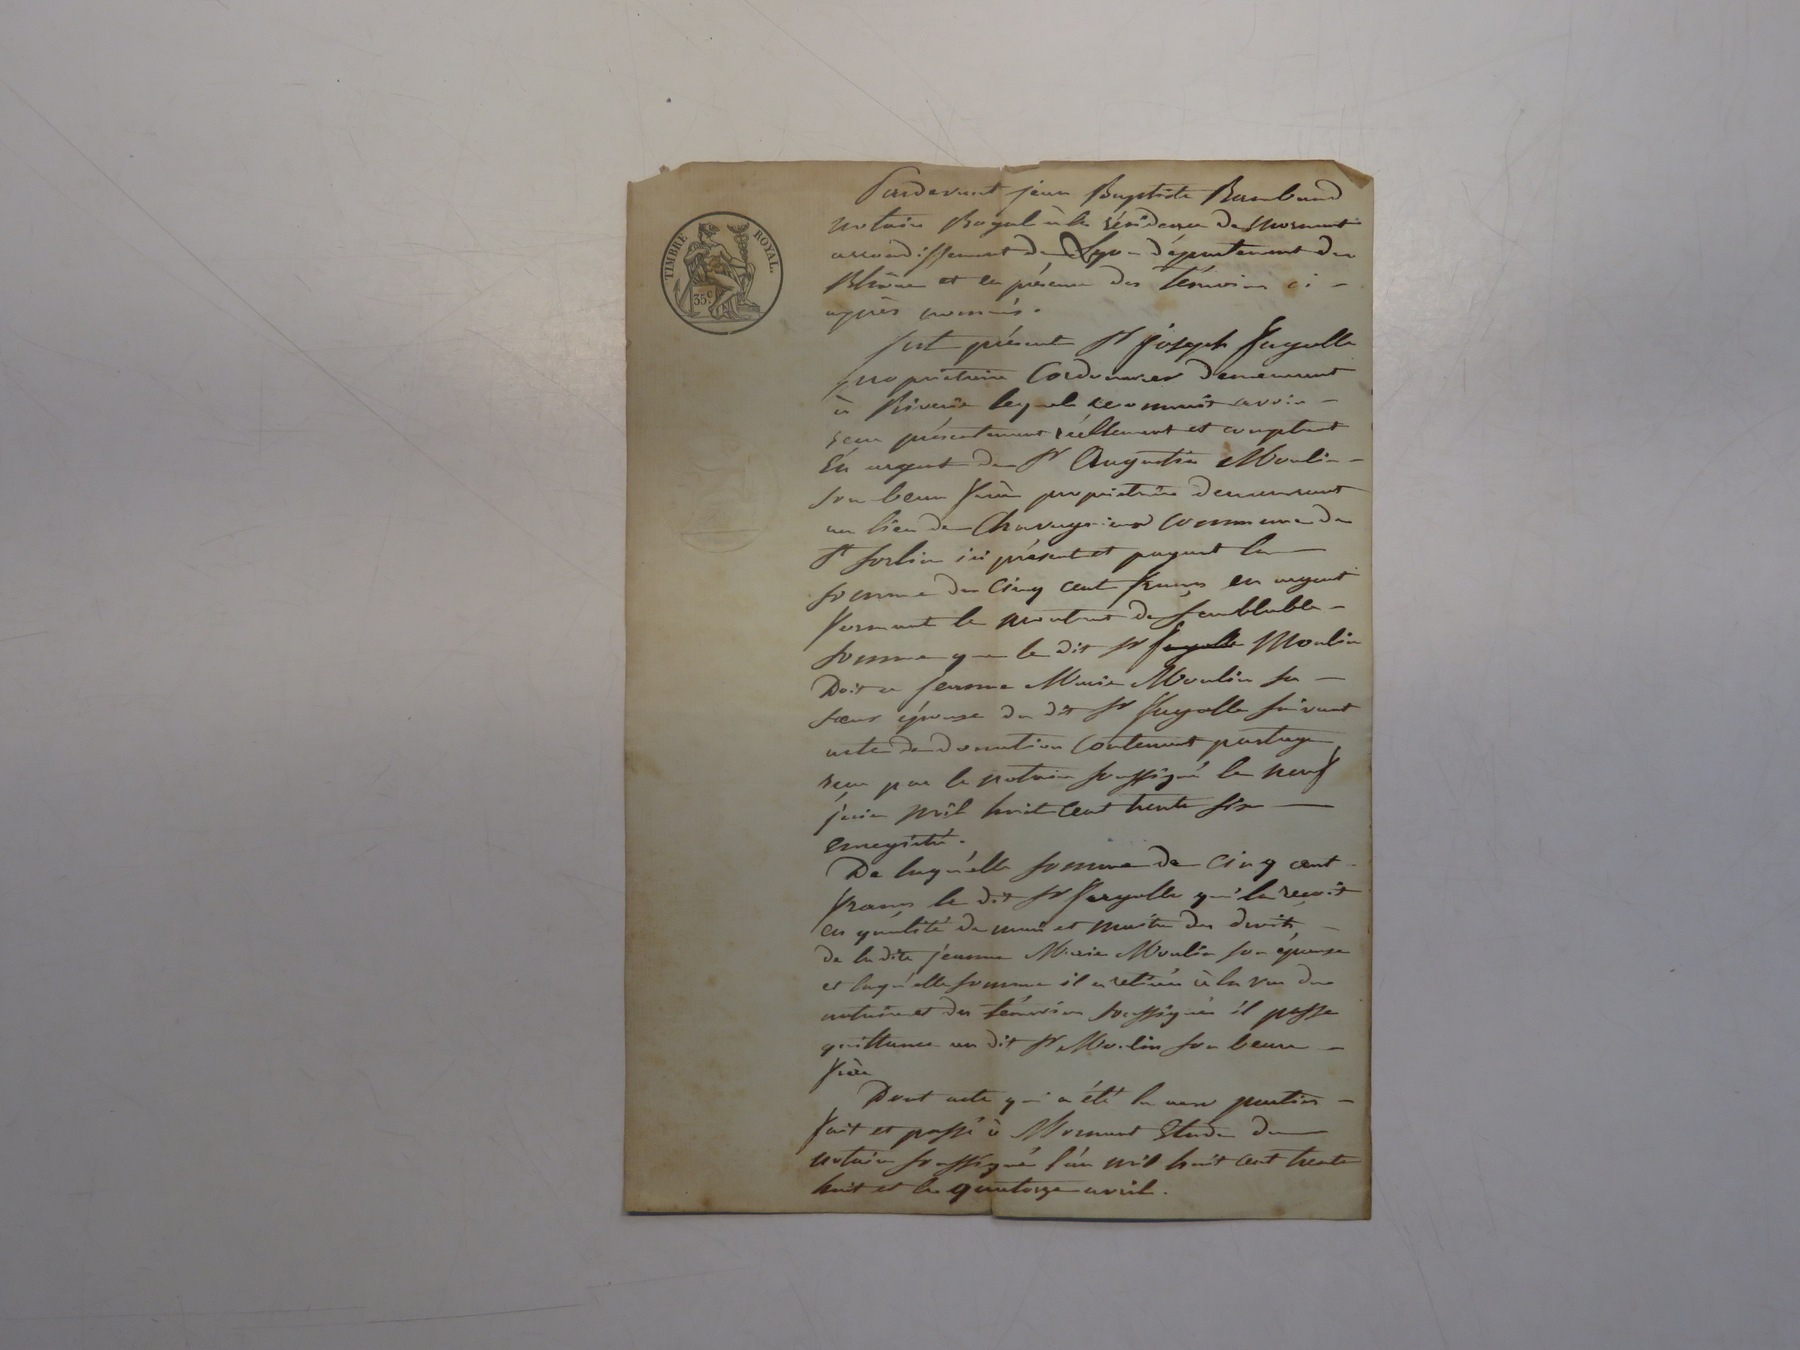 TIMBRE ROYAL.
35 c.
Pardevant jean Baptiste Rambaud
notaire Royal à la résidence de Mornant
arrondissement de Lyon département du
Rhône et en présence des témoins ci -
après només.
fut présent Sr joseph fayolle
propriétaire Cordonnier demeurant
à Riverie lequel reconnait avoir -
recu présentement réellement et comptant
En argent de Sr Augustin Moulin -
son beau frère propriétaire demeurant
au lieu de Commune de
St Sorlin ici présent et payant la
somme de Cinq cent francs en argent
formant le montant de semblable -
somme que le dit Sr fayolle Moulin
Doit a jeanne Marie Moulin sa -
sœur épouse du dit Sr fayolle suivant
acte de donation Contenant partage
recu par le notaire soussigné le neuf
juin mil huit Cent trente six
enregistré.
De laquelle somme de Cinq cent -
francs le dit Sr fayolle qui la reçoit
en qualité de mari et maitre des droits -
de la dite jeanne Marie Moulin son épouse
et laquelle somme il a retirée à la vue du
notaire et des témoins soussignés il passe
quittance au dit Sr Moulin son beau -
frère
Dont acte qui a été lu aux parties -
fait et passé à Mornant Etude du
notaire soussigné l'an mil huit cent trente
huit et le quatorze avril.